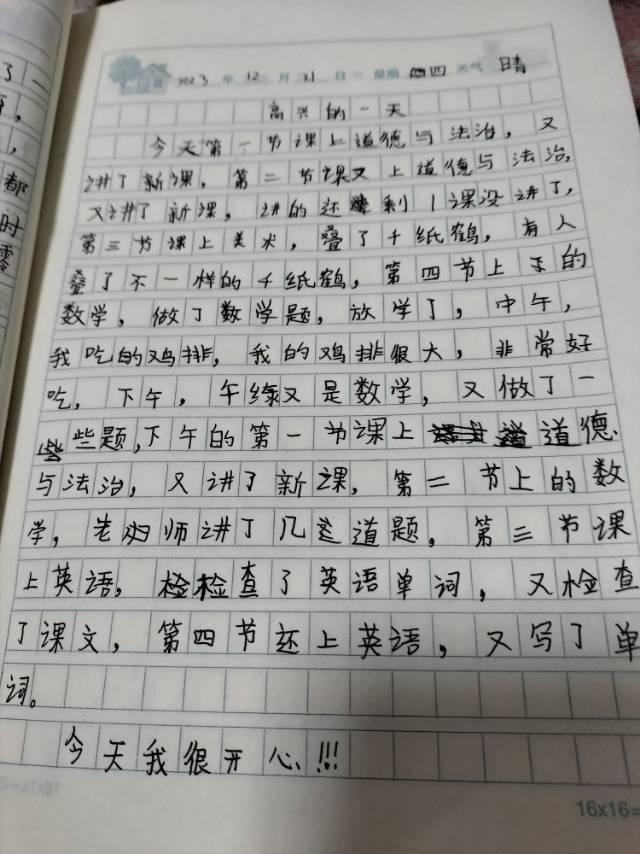 2023年12月21日 星期四 天气 晴
高兴的一天
今天第一节课上道德与法治，又
讲了新课，第二节课又上道德与法治，
又讲了新课，讲的还剩1课没讲了，
第三节课上美术，叠了千纸鹤，有人
叠了不一样的千纸鹤，第四节上的
数学，做了数学题，放学了，中午，
我吃的鸡排，我的鸡排很大，非常好
吃，下午，午练又是数学，又做了一
些题，下午的第一节课上道德
与法治，又讲了新课，第二节上的数
学，老师讲了几道题，第三节课
上英语，检检查了英语单词，又检查
了课文，第四节还上英语，又写了单
词。
今天我很开心!!!
都
时
零
16x16=